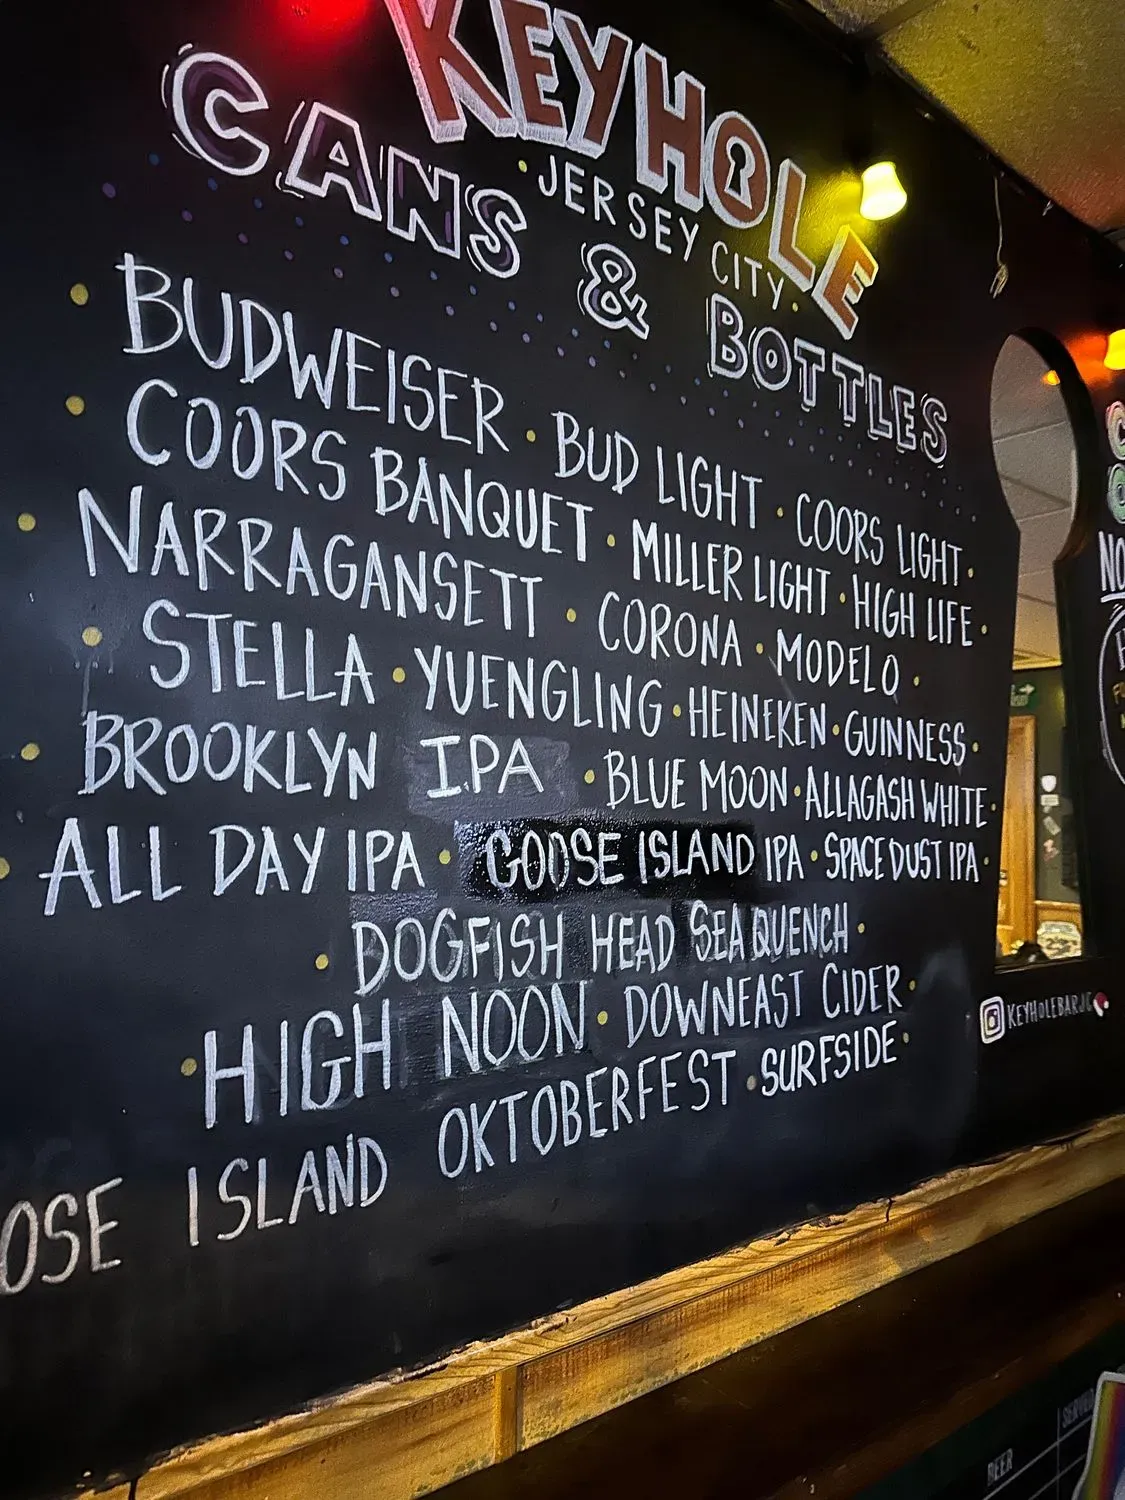 KEYHOLE
JERSEY CITY
CANS & BOTTLES
BUDWEISER · BUD LIGHT · COORS LIGHT ·
COORS BANQUET · MILLER LIGHT · HIGH LIFE ·
NARRAGANSETT · CORONA · MODELO ·
STELLA · YUENGLING · HEINEKEN · GUINNESS ·
BROOKLYN IPA · BLUE MOON · ALLAGASH WHITE ·
ALL DAY IPA · GOOSE ISLAND IPA · SPACE DUST IPA ·
· DOGFISH HEAD SEA QUENCH ·
· HIGH NOON · DOWNEAST CIDER ·
OSE ISLAND OKTOBERFEST · SURFSIDE ·
KEYHOLEBARJC
NO
BEER